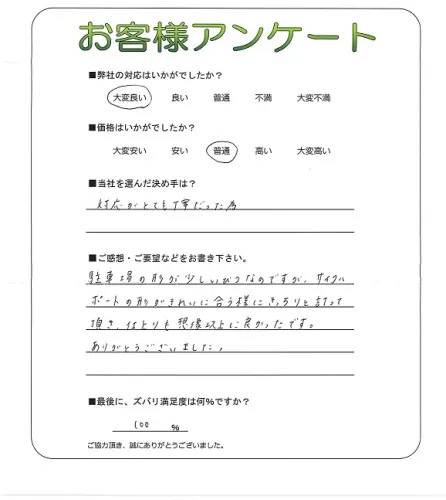 お客様アンケート
■弊社の対応はいかがでしたか？
大変良い 良い 普通 不満 大変不満
■価格はいかがでしたか？
大変安い 安い 普通 高い 大変高い
■当社を選んだ決め手は？
対応がとても丁寧だった為
■ご感想・ご要望などをお書き下さい。
駐車場の形が少しいびつなのですが、サイクル
ポートの形がきれいに合う様にきっちりと計って
頂き、仕上りも想像以上に良かったです。
ありがとうございました。
■最後に、ズバリ満足度は何%ですか？
100 %
ご協力頂き、誠にありがとうございました。